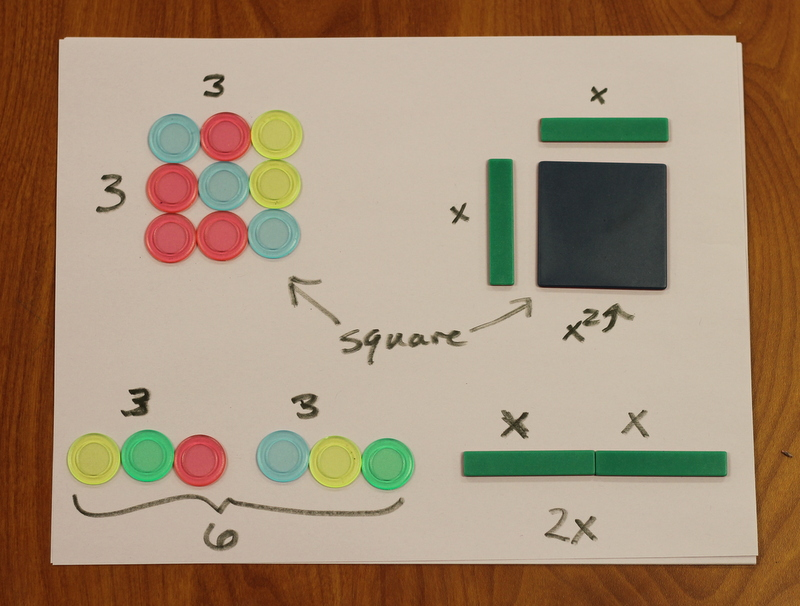 3
3
x
x
square
x²
3
3
6
x
x
2x